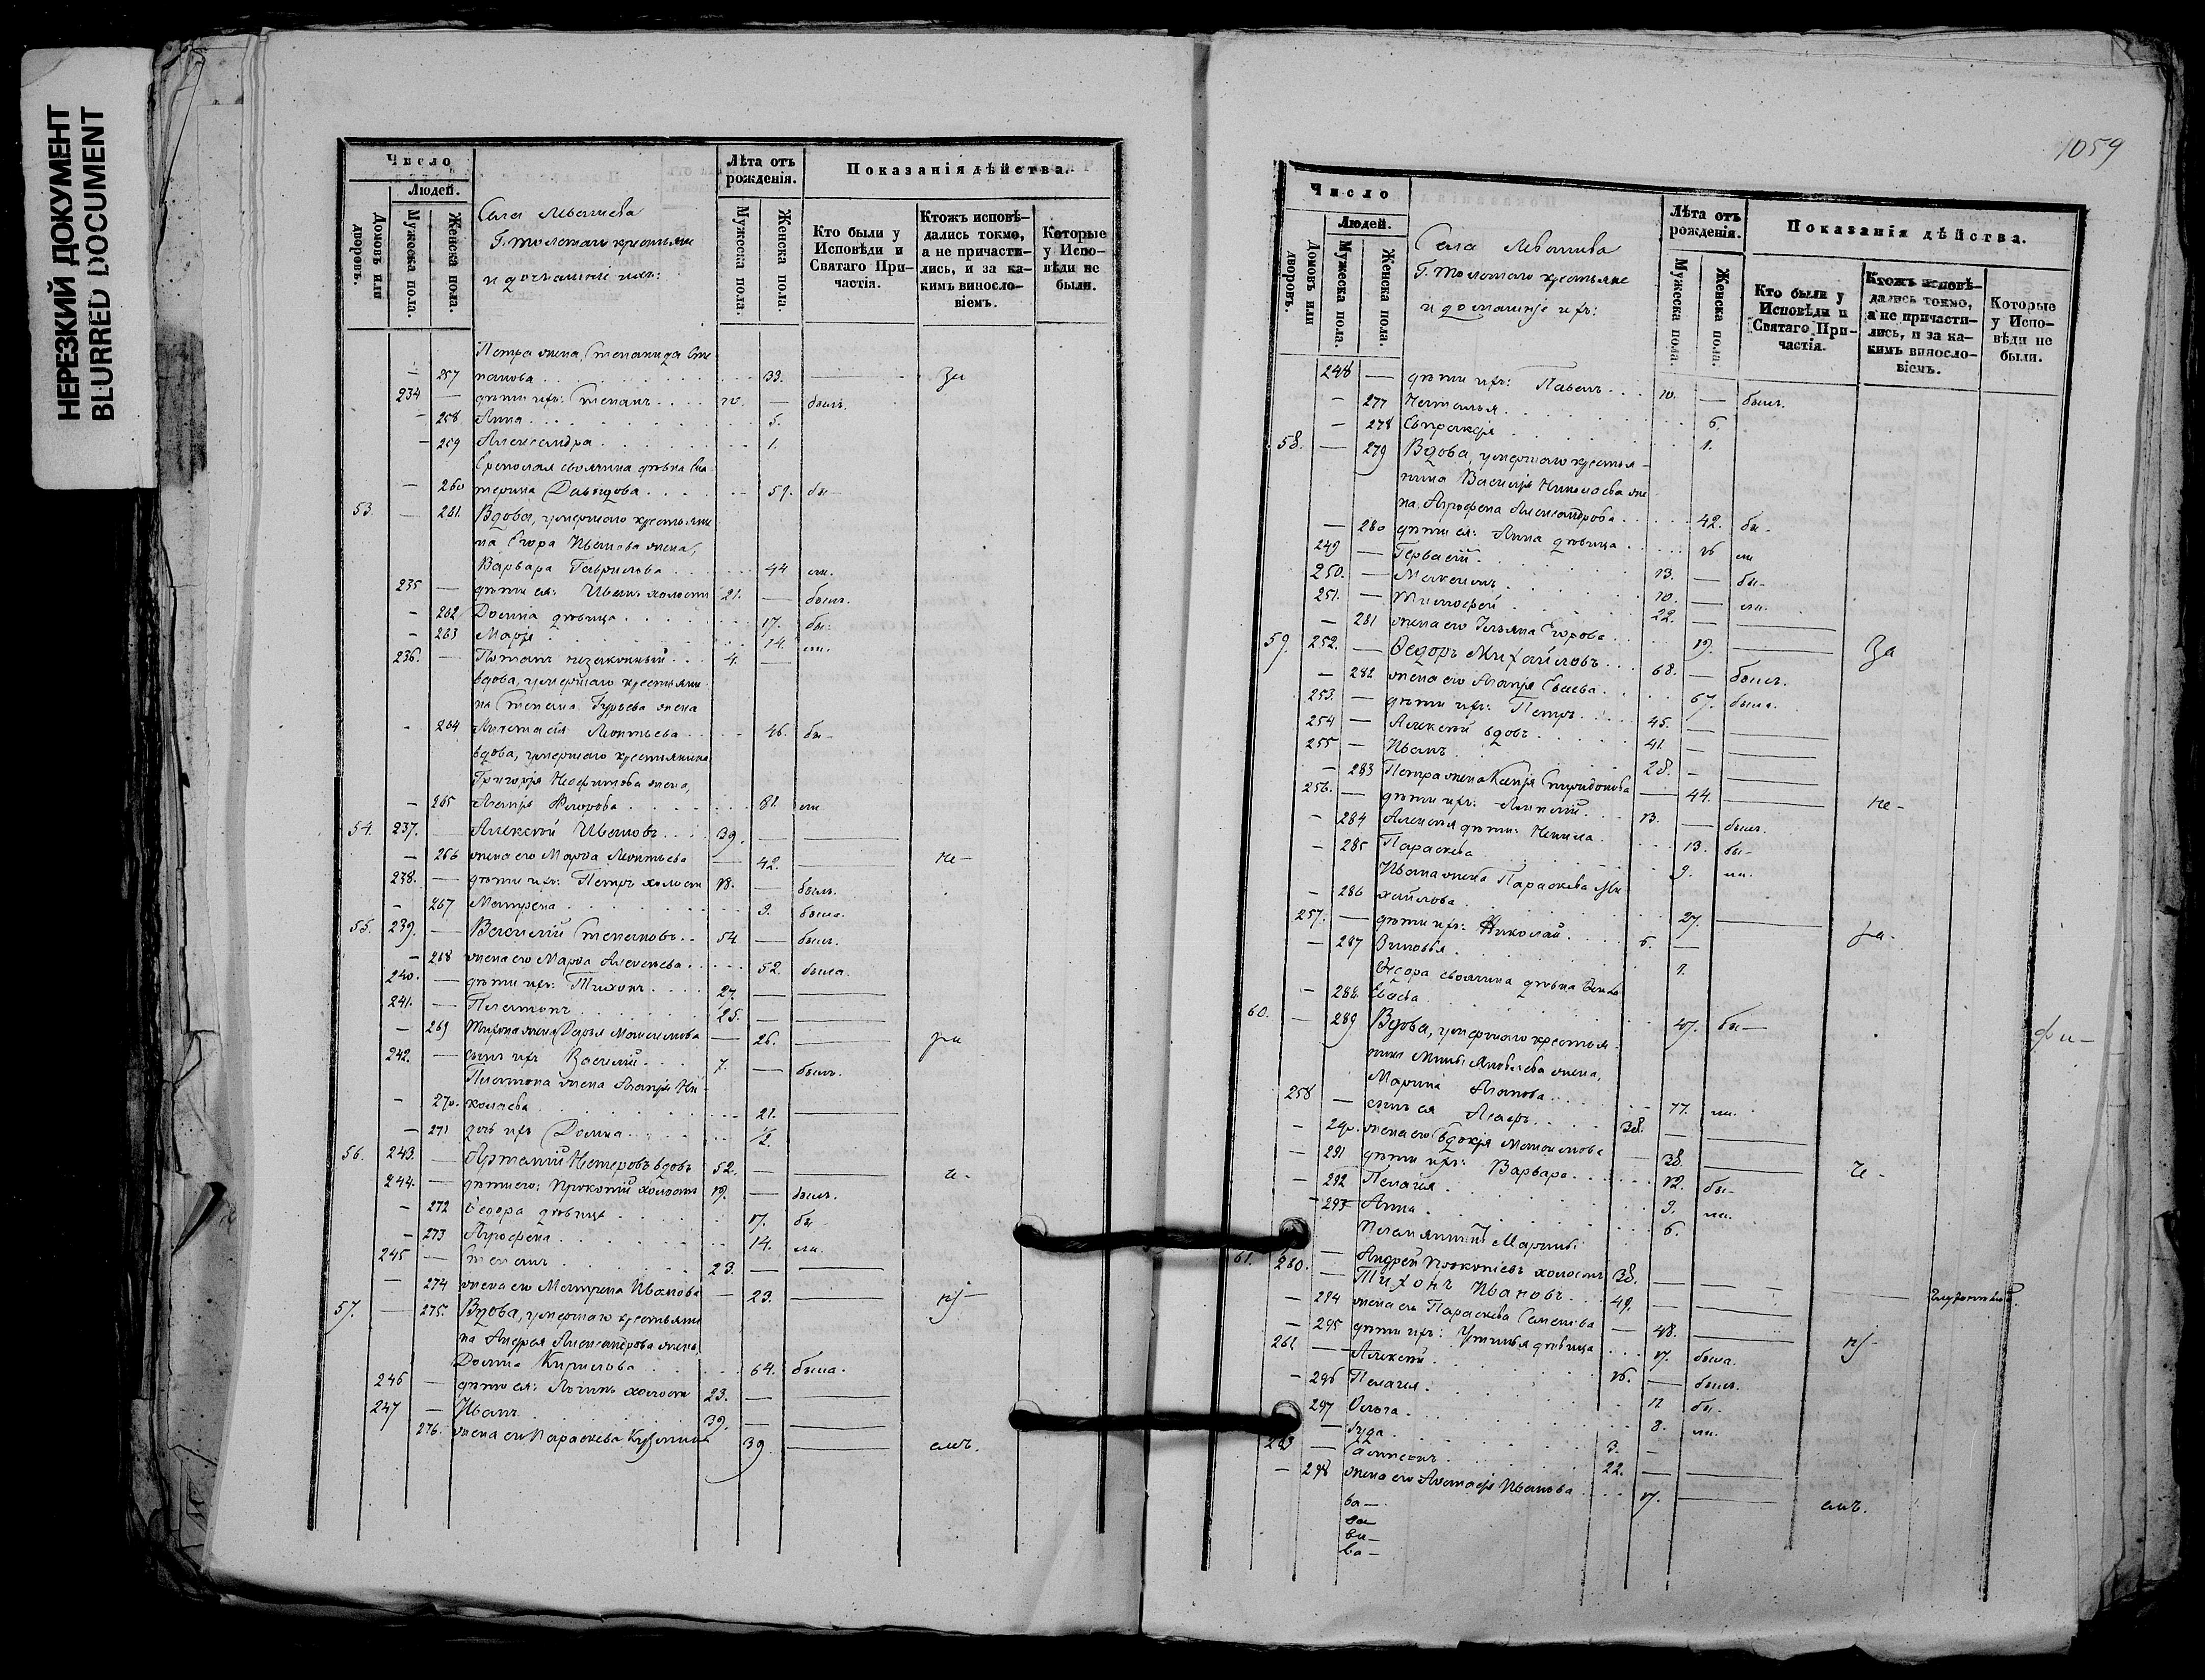 НЕРЕЗКИЙ ДОКУМЕНТ
BLURRED DOCUMENT
Число
Людей.
Домовъ или дворовъ.
Мужеска пола.
Женска пола.
Села
Г. Толстаго крестьяне
и домашніе ихъ:
Лѣта отъ рожденія.
Мужеска пола.
Женска пола.
Показанія дѣйства.
Кто были у Исповѣди и Святаго Причастія.
Ктожъ исповѣдались токмо, а не причастились, и за какимъ винословіемъ.
Которые у Исповѣди не были.
Петра жена Степанида Сте
— 257 панова 33. — За
234 — дѣти ихъ: Степанъ 10. — былъ.
— 258 Анна 5.
— 259 Александра 1.
своячина дѣвка Ека
— 260 терина Давыдова 59. бы—
53. — 261. Вдова, умершаго крестьяни
на Егора Иванова жена,
Варвара Гаврилова 44 ли.
235 — дѣти ея: Иванъ холостъ 21. — былъ.
— 262 Домна дѣвица 17. бы.
— 263 Марія 14. ли.
236. — Потапъ незаконный 4. —
вдова, умершаго крестьяни
на Степана Гурьева жена
— 264 Анастасія Леонтьева 46. бы—
вдова, умершаго крестьянина
Григорія Неофитова жена,
— 265 Агапія Флорова 81. ли
54. 237. — Алексѣй Ивановъ 39. — —
— 266 жена его Марѳа Леонтьева — 42. — не—
238. — дѣти ихъ: Петръ холостъ 18. — былъ.
— 267 Матрена 9. была.
55. 239. — Василій Степановъ 54. — былъ.
— 268 жена его Марѳа Алексѣева 52. была.
240. — дѣти ихъ: Тихонъ 27. — —
241. — Платонъ 25. — —
— 269 Тихона жена Дарья Максимова — 26. — ра
242. — сынъ ихъ Василій 7. — былъ.
Платона жена Агапія Ни
— 270. колаева 21. —
— 271 дочь ихъ Домна 1/2
56. 243. — Артемій Нестеровъ вдовъ 52. — — д—
244. — дѣти его: Прокопій холостъ 19. — былъ.
— 272 Ѳедора дѣвица 17. бы
— 273 Агрофена 14. ли.
245 — Степанъ 23. — —
— 274 жена его Матрена Иванова — 23. —
57. — 275. Вдова, умершаго крестьяни
на Андрея Александрова жена,
Домна Кирилова 64. была.
246 — дѣти ея: Логинъ холостъ 23. — —
247 — Иванъ 39. — —
276. жена его Параскева Кузмина 39. — емъ.
1059
Число
Людей.
Домовъ или дворовъ.
Мужеска пола.
Женска пола.
Села
Г. Толстаго крестьяне
и домашніе ихъ:
Лѣта отъ рожденія.
Мужеска пола.
Женска пола.
Показанія дѣйства.
Кто были у Исповѣди и Святаго Причастія.
Ктожъ исповѣдались токмо, а не причастились, и за какимъ винословіемъ.
Которые у Исповѣди не были.
248 — дѣти ихъ: Павелъ 10. — былъ.
— 277 Наталья 6.
— 278 Евпраксія 1.
58. — 279 Вдова, умершаго крестья—
нина Василія Николаева же
на, Агрофена Александрова 42. бы—
— 280 дѣти ея: Анна дѣвица 16 ли
249 — Гервасій 13. — бы—
250. — Максимъ 10. — ли.
251. — Тимофей 22. — —
— 281 жена его Татьяна Егорова 19. — За
59. 252. — Ѳедоръ Михайловъ 68. — былъ.
— 282 жена его Агапія Евсеева 67. была.
253. — дѣти ихъ: Петръ 45. — —
254 — Алексѣй вдовъ 41. — —
255 — Иванъ 28. — —
— 283 Петра жена Ксенія Спиридонова — 44. — не—
256. — дѣти ихъ: 13. — былъ.
— 284 Алексѣя дѣти: Ненила 13. бы—
— 285 Параскева 9. ли.
Ивана жена Параскева Ми
— 286 хайлова 27. — ра—
257. — дѣти ихъ: Николай 6. —
— 287 Зиновья 1.
Ѳедора своячина дѣвка
— 288 Евсеева 47. бы—
60. — 289 Вдова, умершаго крестья
нина Яковлева жена,
Марина Агапова 77. ли.
258 — сынъ ея 38. — —
— 290. жена его Евдокія Максимова — 38. —
— 291 дѣти ихъ: Варвара 12. бы—
— 292 Пелагія 9. ли.
— 293 Анна 6.
Племянникъ Марины
Андрей Прокопіевъ холостъ 38. — —
61. 260. — Тихонъ Ивановъ 49. — —
— 294 жена его Параскева Семенова — 48. —
— 295 дѣти ихъ: Устинья дѣвица 17. была.
261 — Алексѣй 16. — былъ.
— 296 Пелагія 12 бы.
— 297 Ольга 8. ли.
— Іуда 3. —
263 — Сампсонъ 22. — —
— 298 жена его Анастасія Иванова 17. — емъ.
ва—